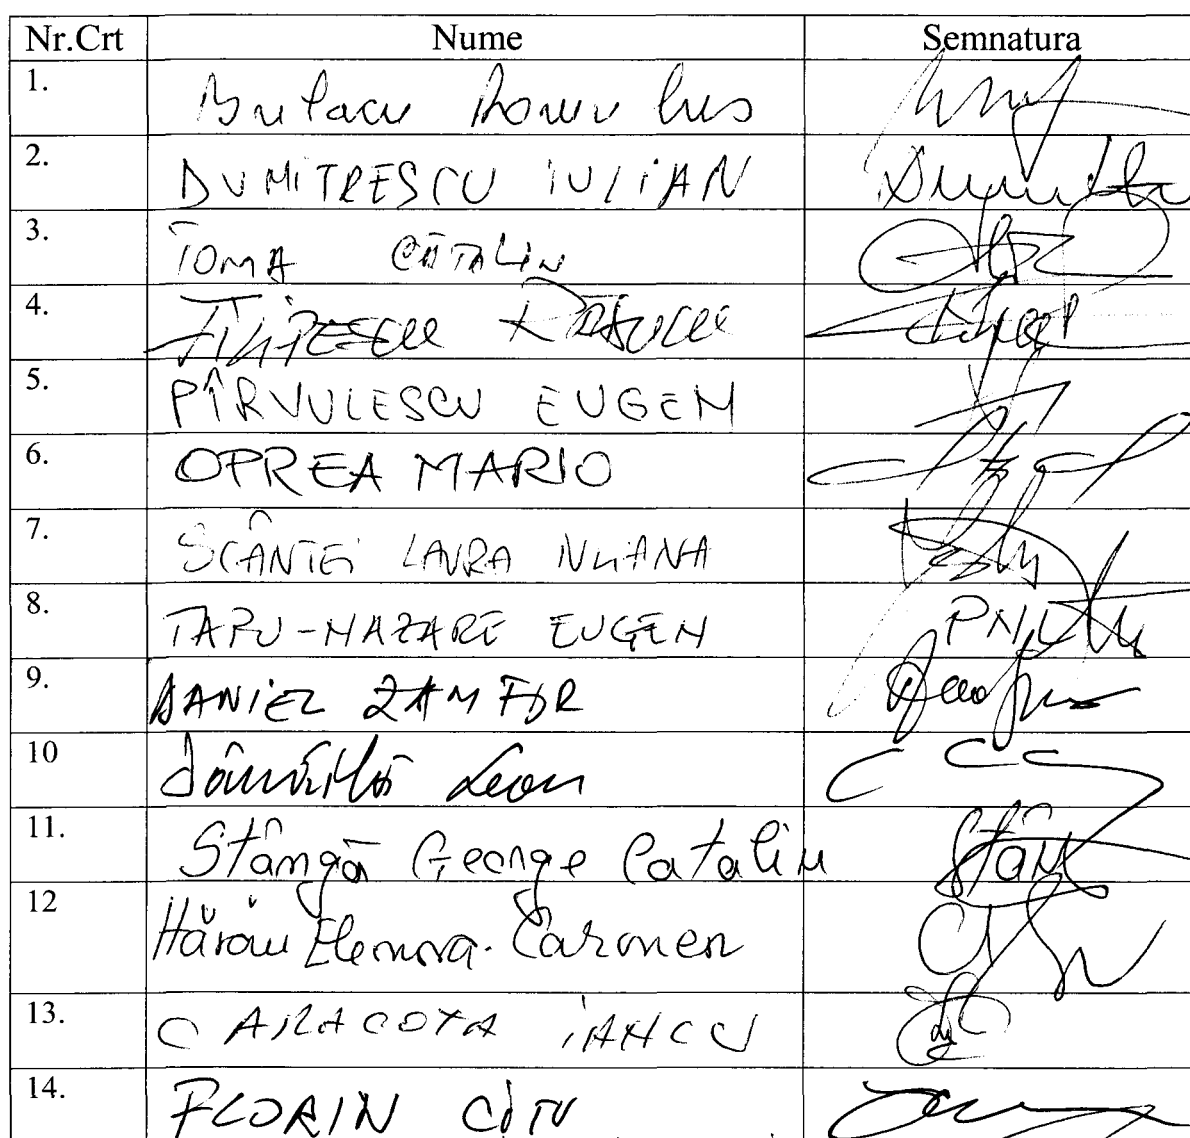 Nr.Crt Nume Semnatura
1. Bulacu Romulus
2. DUMITRESCU IULIAN Dumitr
3. TOMA CĂTĂLIN
4. FILIPESCU RĂDUCU
5. PÎRVULESCU EUGEN
6. OPREA MARIO
7. SCÂNTEI LAURA IULIANA
8. ȚAPU-NAZARE EUGEN PNL
9. DANIEL ZAMFIR
10 Dănăilă Leon
11. Stângă George Catalin Stân
12 Hărău Elenora-Carmen
13. CARACOTA IANCU
14. FLORIN CÎȚU